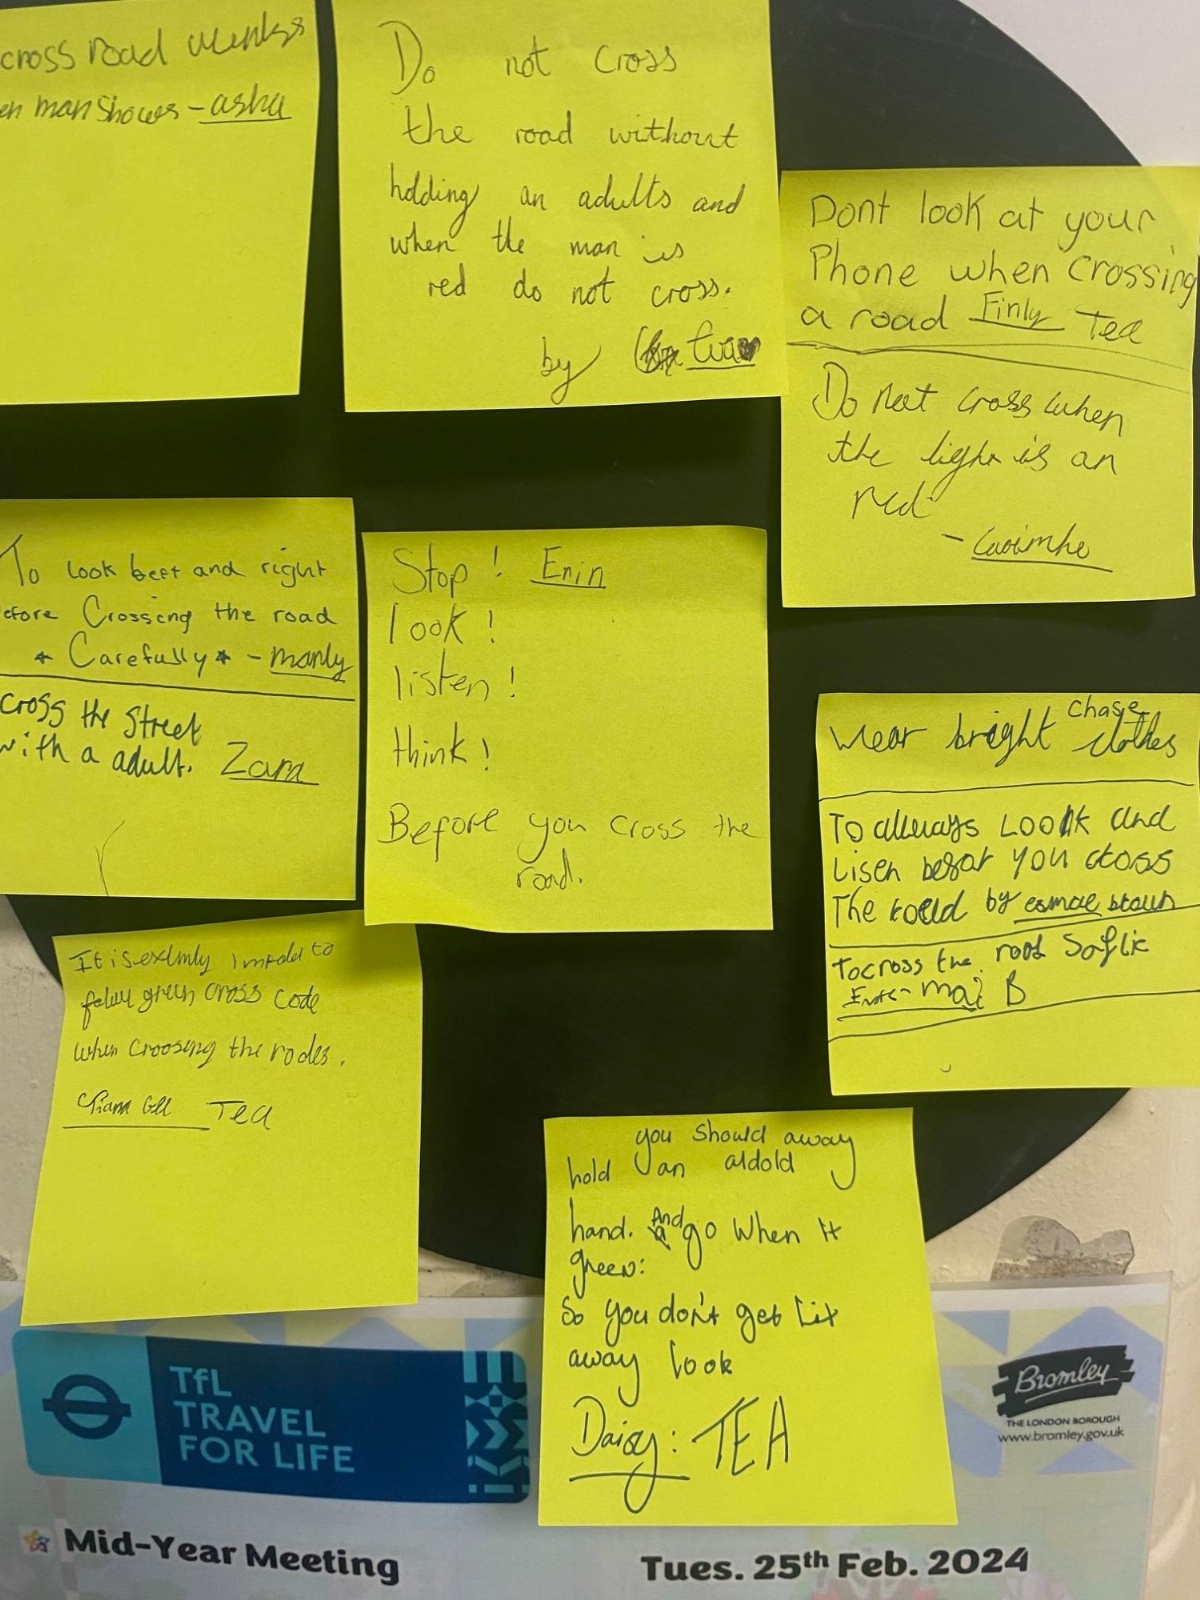 cross road
en man shows - asha
Do not cross
the road without
holding an adults and
when the man is
red do not cross.
by Eva
Dont look at your
Phone when crossing
a road Finly Tea
Do not cross when
the light is an
red
- Caoimhe
To look left and right
efore Crossing the road
* Carefully * - manly
cross the street
with a adult. Zara
Stop! Erin
look!
listen!
think!
Before you cross the
road.
wear bright clothes
Chase
To allways LOOk and
Lisen befor you cross
The roed by esmae
To cross the road
mai B
It is to
green cross code
when croosing the rodes.
Tea
you should away
hold an aldold
hand. And go when it
green:
So you don't get hit
away look
Daisy: TEA
TfL
TRAVEL
FOR LIFE
Bromley
THE LONDON BOROUGH
www.bromley.gov.uk
Mid-Year Meeting
Tues. 25th Feb. 2024